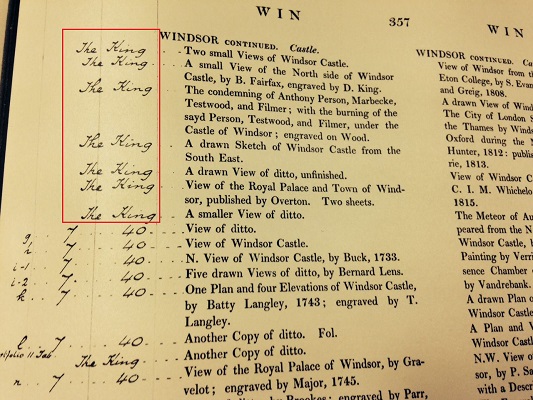 WIN 357 WIN
WINDSOR CONTINUED. Castle.
The King . . . Two small Views of Windsor Castle.
The King . . . A small View of the North side of Windsor
Castle, by B. Fairfax, engraved by D. King.
The King . . . The condemning of Anthony Person, Marbecke,
Testwood, and Filmer; with the burning of the
sayd Person, Testwood, and Filmer, under the
Castle of Windsor; engraved on Wood.
The King . . . A drawn Sketch of Windsor Castle from the
South East.
The King . . . A drawn View of ditto, unfinished.
The King . . . View of the Royal Palace and Town of Wind-
sor, published by Overton. Two sheets.
The King . . . A smaller View of ditto.
g, 7 . . 40 . . . View of ditto.
7 . . 40 . . . View of Windsor Castle.
i-1 7 . . 40 . . . N. View of Windsor Castle, by Buck, 1733.
i-2 7 . . 40 . . . Five drawn Views of ditto, by Bernard Lens.
k. 7 . . 40 . . . One Plan and four Elevations of Windsor Castle,
by Batty Langley, 1743; engraved by T.
Langley.
l. 7 . . 40 . . . Another Copy of ditto. Fol.
The King . . . Another Copy of ditto.
n. 7 . . 40 . . . View of the Royal Palace of Windsor, by Gra-
velot; engraved by Major, 1745.
of ditto, by Brookes; engraved by Parr,
WINDSOR CONTINUED. Ca
View of Windsor from th
Eton College, by S. Evan
and Greig, 1808.
A drawn View of Wind
The City of London S
the Thames by Winds
Oxford during the
Hunter, 1812: publis
rie, 1813.
View of Windsor C
C. I. M. Whichelo
1815.
The Meteor of Au
peared from the N
Windsor Castle, b
Painting by Verri
sence Chamber
by Vandrebank.
A drawn Plan o
Windsor Castle
A Plan and V
Windsor Castle
N.W. View of
sor, by P. Sa
with a Descr